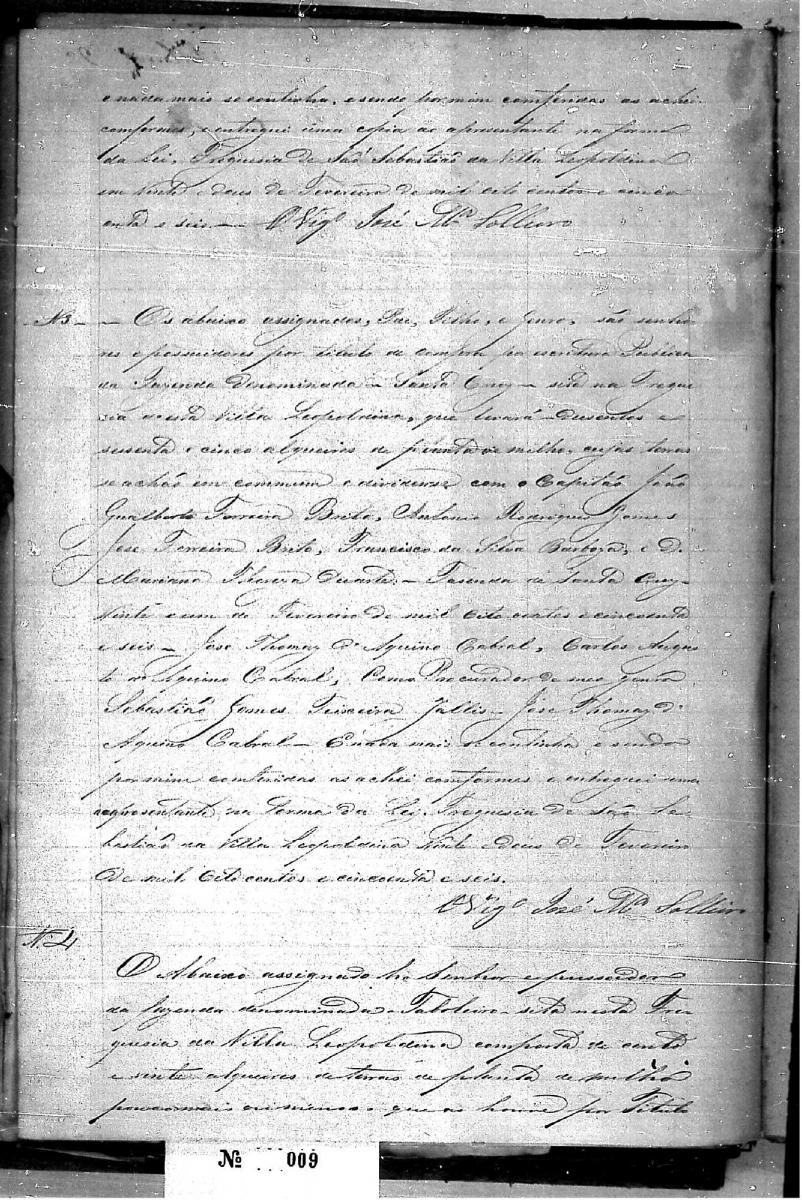 e nada mais se continha, e sendo por mim comferidas as achei
comformes, e entreguei uma copia ao apresentante na forma
da Lei. Freguesia de São Sebastião da Villa Leopoldina
em vinte e dous de Fevereiro de mil oito centos e cinco
enta e seis — O Vigº José Mª Solleiro
N3 — Os abaixo assignados, Pae, Filho, e Genro, são senho
res e possuidores por titulo de compra por escritura Publica
da Fazenda denominada — Santa Cruz — sita na Fregue
sia desta Villa Leopoldina, que levará dusentos e
sessenta e cinco alqueires de planta de milho, cujas terras
se achão em commum e dividense com o Capitão João
Gualberto Ferreira Brito, Antonio Rodrigues Gomes
Jose Ferreira Brito, Francisco da Silva Barboza, e D.
Mariana Thereza Duarte. — Fasenda de Santa Cruz
vinte e um de Fevereiro de mil oito centos e cincoenta
e seis — Jose Thomaz d' Aquino Cabral, Carlos Augus
to de Aquino Cabral, Como Procurador de meo genro
Sebastião Gomes Teixeira Jallis — Jose Thomaz d'
Aquino Cabral — E nada mais se continha e sendo
por mim conferidas as achei comformes e entreguei uma
apresentante na forma da Lei. Freguesia de São Se
bastião da Villa Leopoldina vinte e dous de Fevereiro
de mil oito centos e cincoenta e seis.
O Vigº José Mª Solleiro
N. 4
O Abaixo assignado he Senhor e possoidor
da fazenda denominada — Taboleiro — sita nesta Fre
guesia da Villa Leopoldina comporta de cento
e vinte alqueires de terras de planta de milho
pouco mais ou menos, que as houve por Titulo
Nº 009